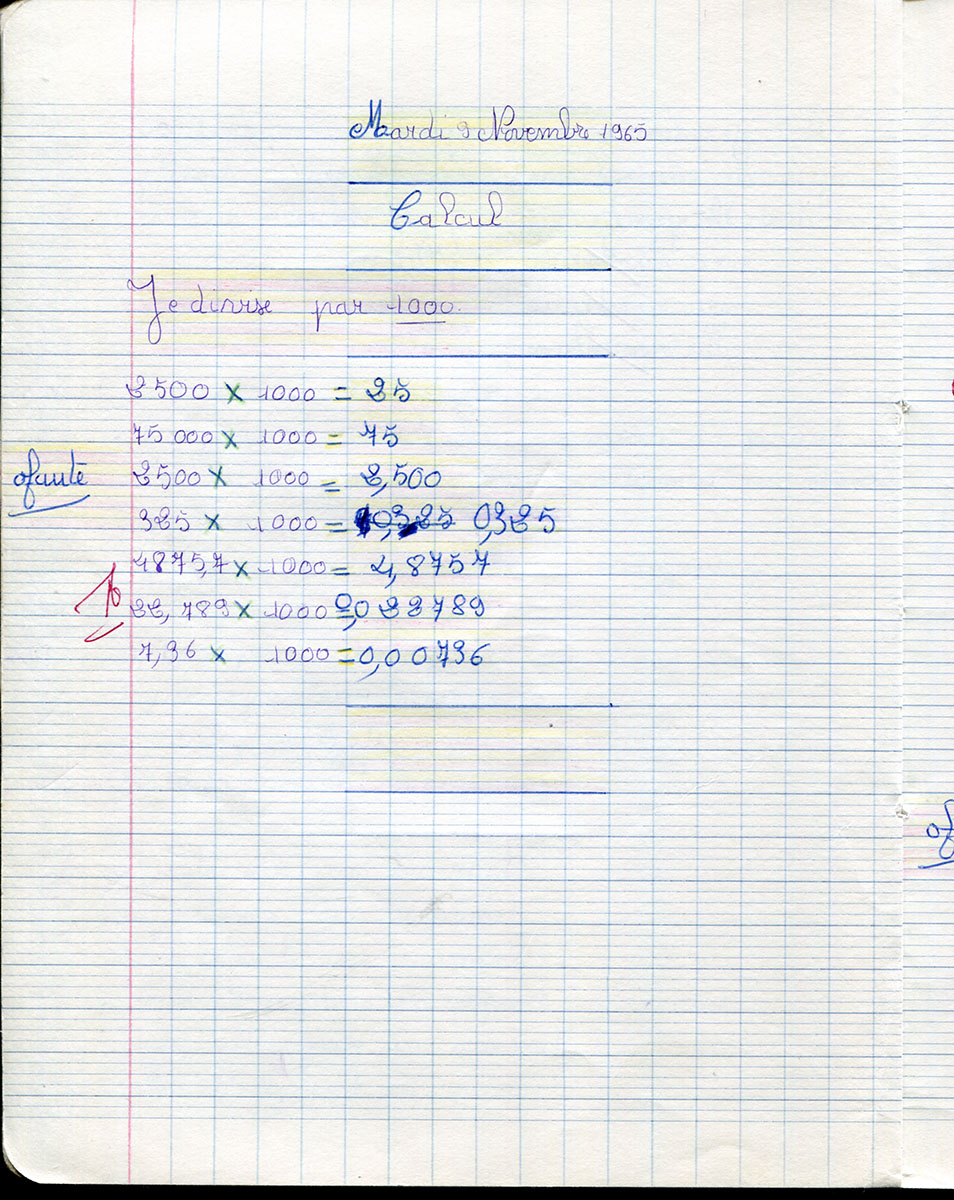 Mardi 9 Novembre 1965
Calcul
Je divise par 1000.
2500 x 1000 = 25
75 000 x 1000 = 75
0faute 2500 x 1000 = 2,500
325 x 1000 = 0,325
4875,7 x 1000 = 4,8757
10 22,789 x 1000 = 0,022789
7,36 x 1000 = 0,00736